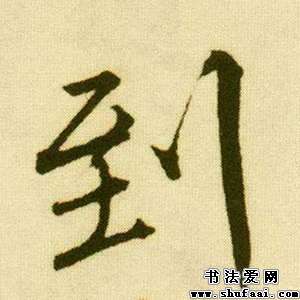 到
书法爱网
www.shufaai.com